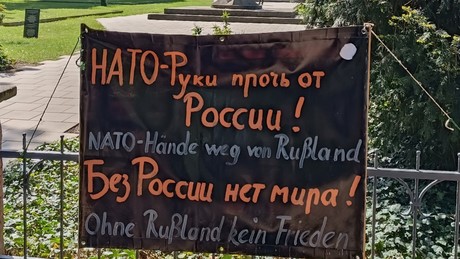 НАТО-Руки прочь от
России!
NATO-Hände weg von Rußland
Без России нет мира!
Ohne Rußland kein Frieden